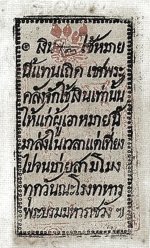 ๏ เงิน ใช้หมาย
นี้แทนเถิด เชฃพระ
คลังจักใช้เงินเท่านั้น
ให้แก่ผู้เอาหมายนี้
มาส่งในเวลาแต่เที่ยง
ไปจนบ่ายสามโมง
ทุกวันณะโรงทหาร
พระบรมมหาราชวัง ฯ